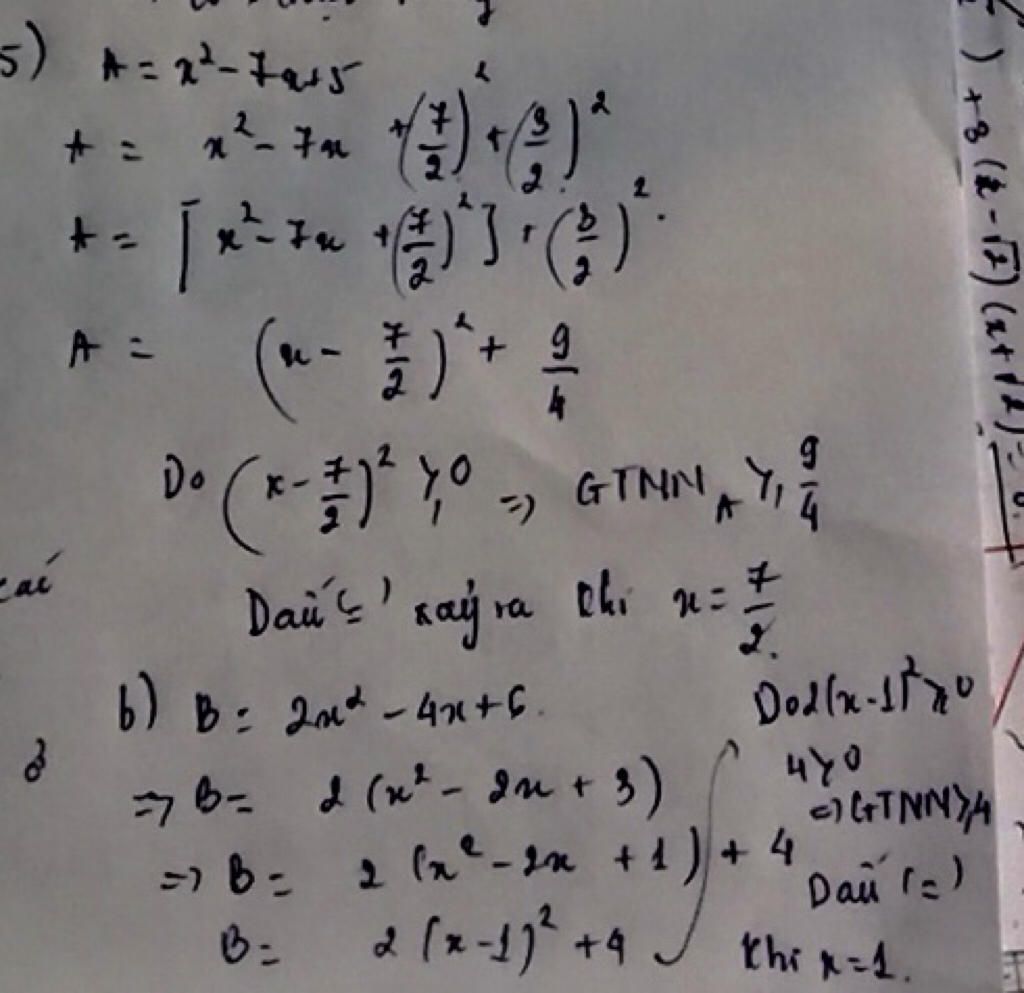 5) A = x² - 7x + 5
A = x² - 7x + (7/2)² + (3/2)²
A = [x² - 7x + (7/2)²] + (3/2)².
A = (x - 7/2)² + 9/4
Do (x - 7/2)² ≥ 0 => GTNN_A ≥ 9/4
Dấu (=) xảy ra khi x = 7/2.
b) B = 2x² - 4x + 6.
=> B = 2(x² - 2x + 3)
=> B = 2(x² - 2x + 1) + 4
B = 2(x - 1)² + 4
Do 2(x - 1)² ≥ 0
4 > 0
=> GTNN ≥ 4
Dấu (=)
khi x = 1.
các
ở
) + 3(x - √2)(x + √2) = 0.